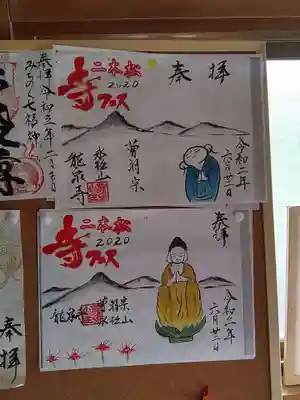 奉拝
令和二年
みちのく七福神
二本松
2020
寺フェス
奉拝
令和二年
六月廿二日
曹洞宗
永松山
龍泉寺
二本松
2020
寺フェス
奉拝
令和二年
六月廿二日
曹洞宗
永松山
龍泉寺
奉拝